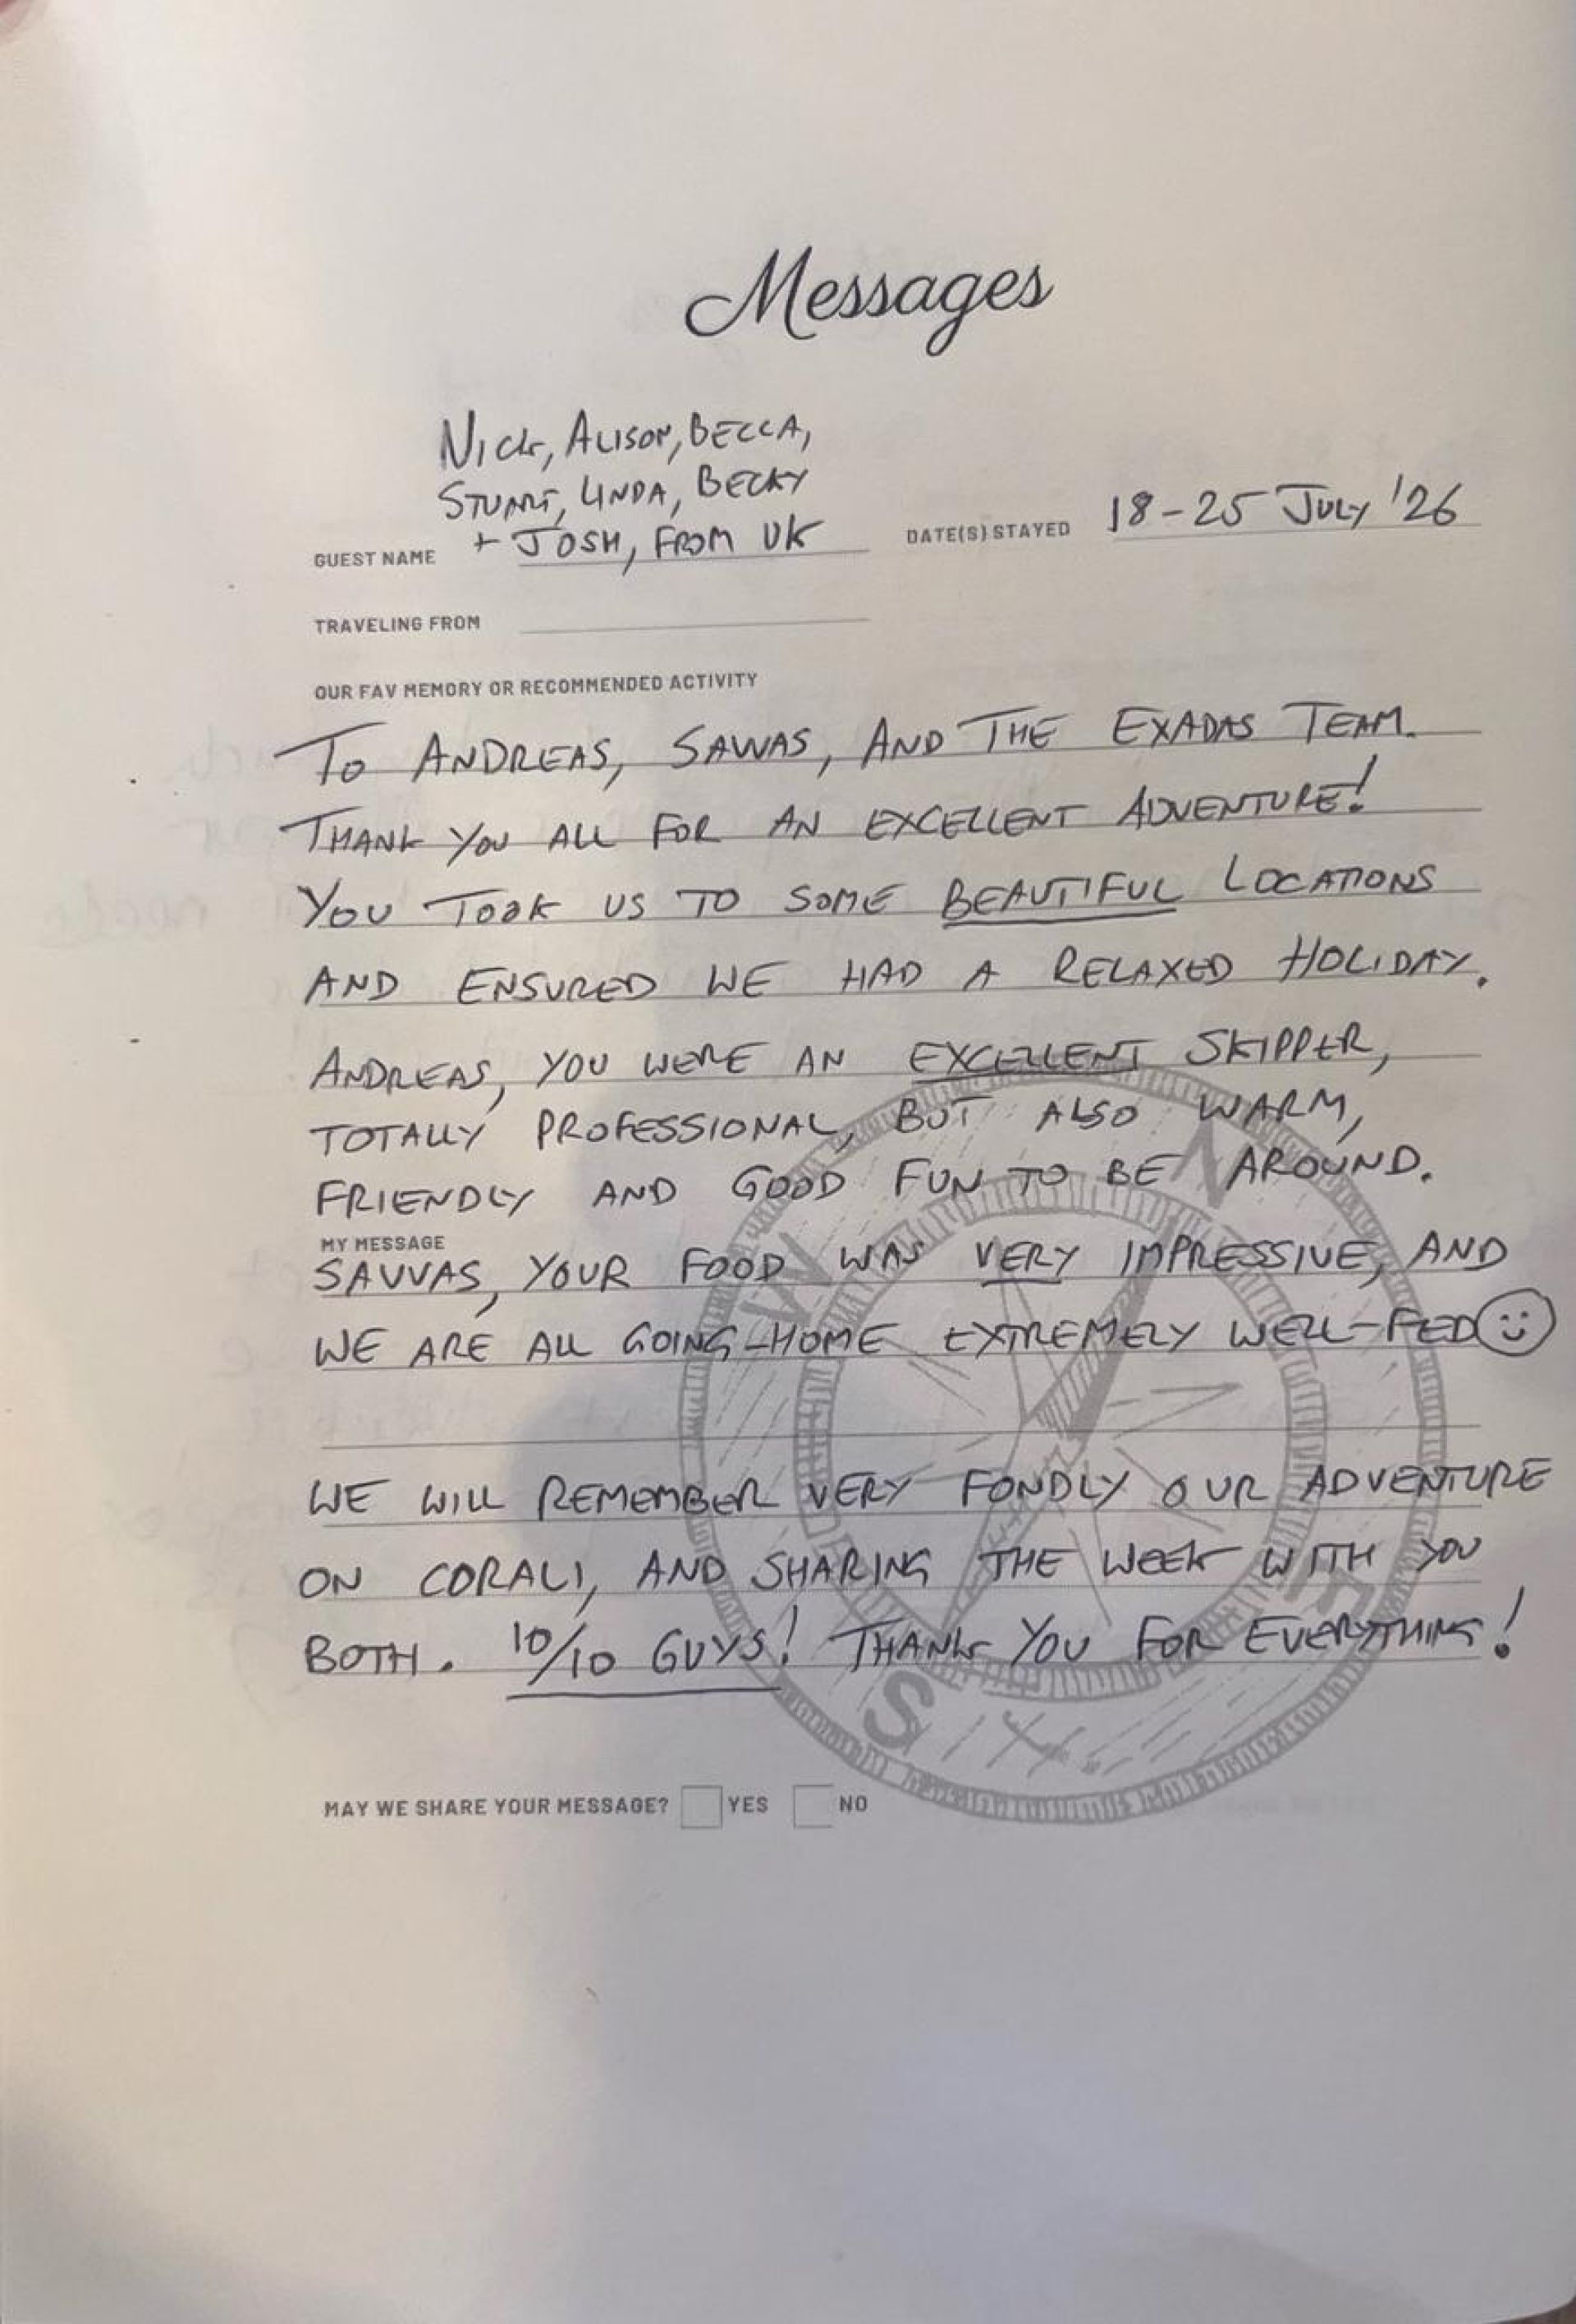 Messages
NICK, ALISON, BECCA,
STUART, LINDA, BECKY
GUEST NAME + JOSH, FROM UK DATE(S) STAYED 18-25 JULY '26
TRAVELING FROM
OUR FAV MEMORY OR RECOMMENDED ACTIVITY
TO ANDREAS, SAVVAS, AND THE EXADAS TEAM.
THANK YOU ALL FOR AN EXCELLENT ADVENTURE!
YOU TOOK US TO SOME BEAUTIFUL LOCATIONS
AND ENSURED WE HAD A RELAXED HOLIDAY.
ANDREAS, YOU WERE AN EXCELLENT SKIPPER,
TOTALLY PROFESSIONAL, BUT ALSO WARM,
FRIENDLY AND GOOD FUN TO BE AROUND.
MY MESSAGE
SAVVAS, YOUR FOOD WAS VERY IMPRESSIVE, AND
WE ARE ALL GOING HOME EXTREMELY WELL-FED
WE WILL REMEMBER VERY FONDLY OUR ADVENTURE
ON CORALI, AND SHARING THE WEEK WITH YOU
BOTH. 10/10 GUYS! THANK YOU FOR EVERYTHING!
MAY WE SHARE YOUR MESSAGE? YES NO
N
W
E
S